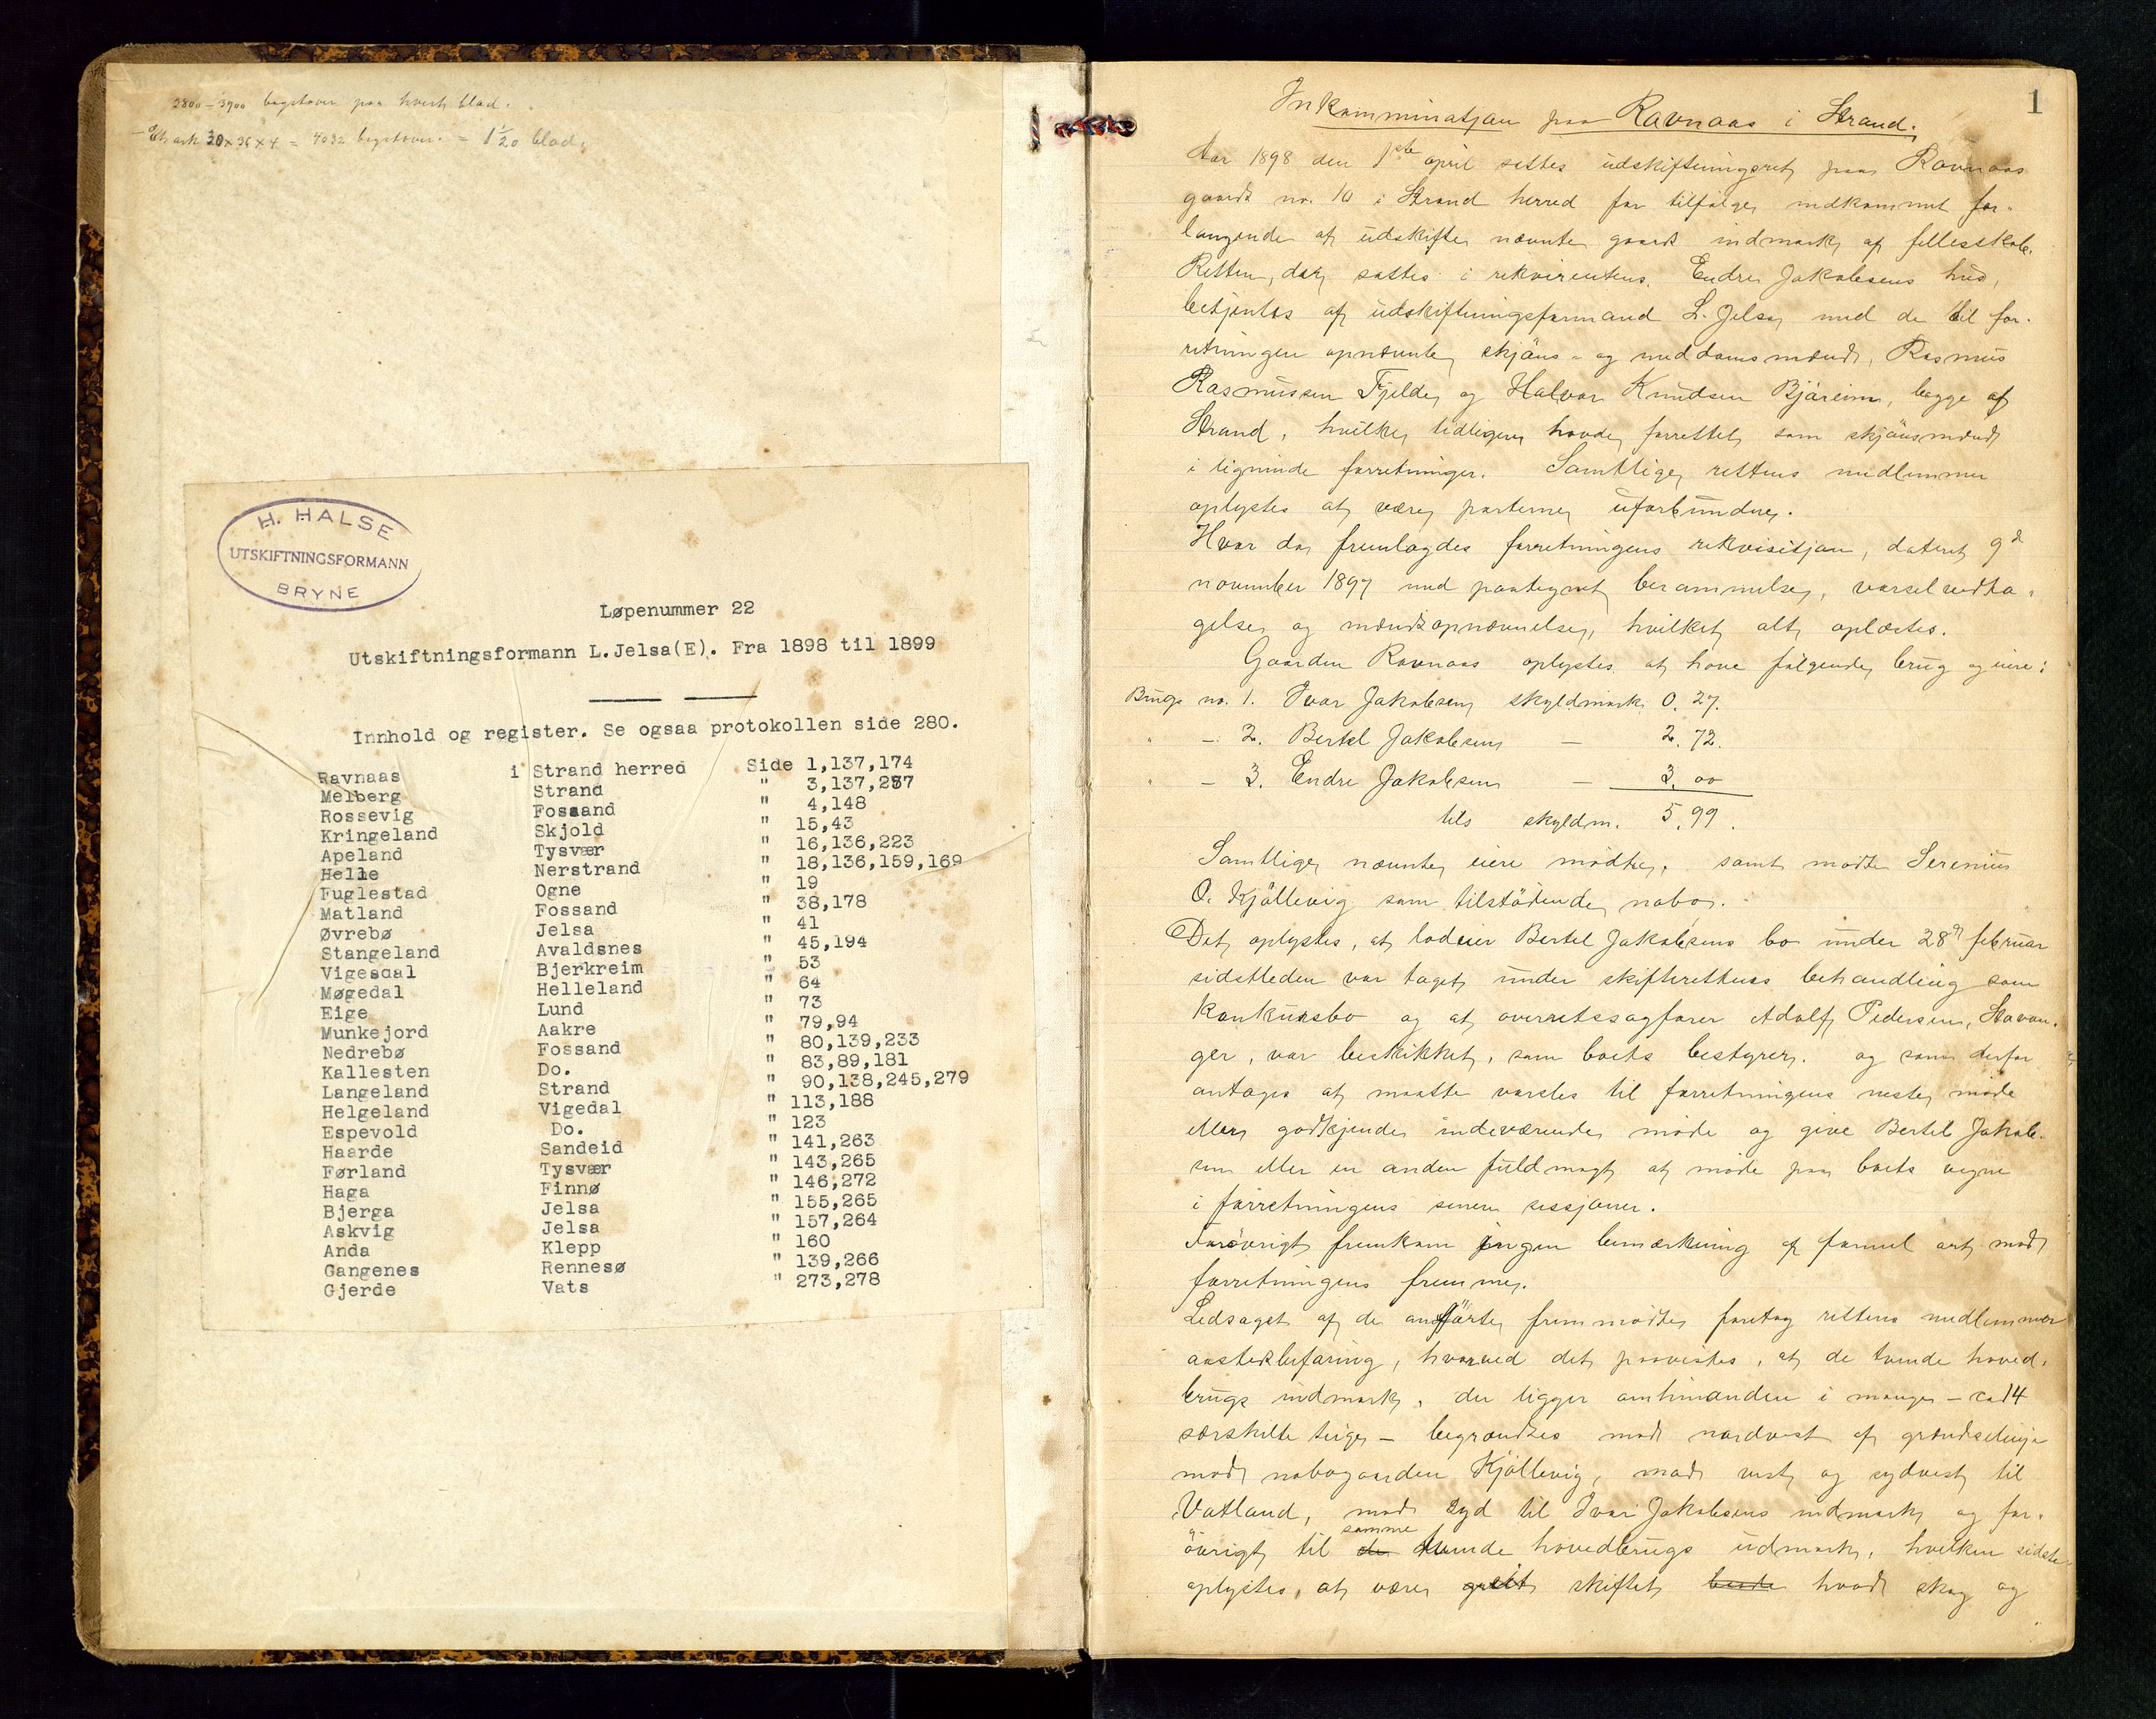 2800 - 3900 bogstaver paa hvert blad.
- Et ark 30 x 36 x 4 = 4032 bogstaver. = 1 1/20 blad.
H. HALSE
UTSKIFTNINGSFORMANN
BRYNE
Løpenummer 22
Utskiftningsformann L.Jelsa(E). Fra 1898 til 1899
Innhold og register. Se ogsaa protokollen side 280.
Ravnaas i Strand herred Side 1,137,174
Melberg Strand " 3,137,287
Rossevig Fossand " 4,148
Kringeland Skjold " 15,43
Apeland Tysvær " 16,136,223
Helle Nerstrand " 18,136,159,169
Fuglestad Ogne " 19
Matland Fossand " 38,178
Øvrebø Jelsa " 41
Stangeland Avaldsnes " 45,194
Vigesdal Bjerkreim " 53
Møgedal Helleland " 64
Eige Lund " 73
Munkejord Aakre " 79,94
Nedrebø Fossand " 80,139,233
Kallesten Do. " 83,89,181
Langeland Strand " 90,138,245,279
Helgeland Vigedal " 113,188
Espevold Do. " 123
Haarde Sandeid " 141,263
Førland Tysvær " 143,265
Haga Finnø " 146,272
Bjerga Jelsa " 155,265
Askvig Jelsa " 157,264
Anda Klepp " 160
Gangenes Rennesø " 139,266
Gjerde Vats " 273,278
1
Inkamminatjan paa Ravnaas i Strand.
Aar 1898 den 1ste april settes udskiftningsret paa Ravnaas
gaards no. 10 i Strand herred for tilfølge indkommet for-
langende af udskifte nævnte gaards indmark af fellesskab.
Retten, der sattes i rekvirentens Endre Jakobsens hus,
betjentes af udskiftningsformand L. Jelsa med de til for-
retningen opnævnte skjøns- og meddomsmænd, Rasmus
Rasmussen Fjelde og Halvor Knudsen Bjåreim, begge af
Strand, hvilke tidligere havde forrettet som skjønsmænd
i lignende forretninger. Samtlige rettens medlemmer
oplystes at være parterne uforbundne.
Hvor da fremlagdes forretningens rekvisitjan, dateret 9d
november 1897 med paategnet berammelse, varselvedta-
gelse og mændsopnævnelse, hvilket alt oplæstes.
Gaarden Ravnaas oplystes at have følgende brug og eiere:
Brugs no. 1. Ivar Jakobsen skyldmark 0. 27.
" - 2. Bertel Jakobsen — 2. 72.
" - 3. Endre Jakobsen — 3. 00
tils skyldm. 5,99.
Samtlige nævnte eiere mødte, samt mødte Serenius
O. Kjøllevig som tilstødende nabo.
Det oplystes, at lodeier Bertel Jakobsens bo under 28d februar
sidstleden var taget under skifterettens behandling som
konkursbo og at overretssagfører Adolf Pedersen, Stavan-
ger, var beskikket, som boets bestyrer. og som derfor
antages at maatte varsles til forretningens neste møde
eller godkjende indeværende møde og give Bertel Jakob-
sen eller en anden fuldmagt at møde paa boets vegne
i forretningens senere sessjoner.
Forøvrigt fremkom ingen bemærkning af formel art mod
forretningens fremme.
Ledsaget af de anførte fremmødte foretog rettens medlemmer
aastedsbefaring, hvorved det paavistes, at de tvende hoved-
brugs indmark, der ligger omhinanden i mange - ca 14
særskilte teige - begrændses mod nordvest af grændselinje
mod nabogaarden Kjøllevig, mod vest og sydvest til
Vatland, mod syd til Ivar Jakobsens indmark og for-
øvrigt til de samme tvende hovedbrugs udmark, hvilken sidste
oplystes, at være skiftet hvad skog og